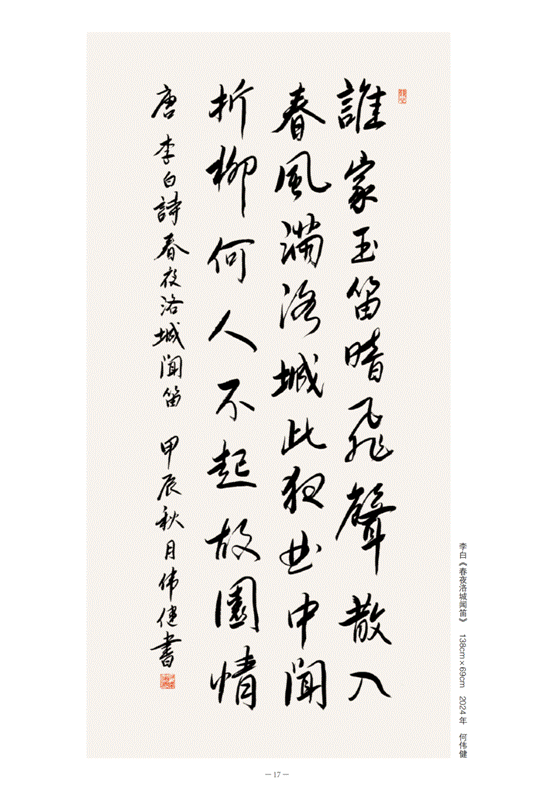 誰家玉笛暗飛聲散入
春風滿洛城此夜曲中聞
折柳何人不起故園情
唐李白詩春夜洛城聞笛 甲辰秋月伟健書
李白《春夜洛城闻笛》 138cm×69cm 2024年 何伟健
— 17 —